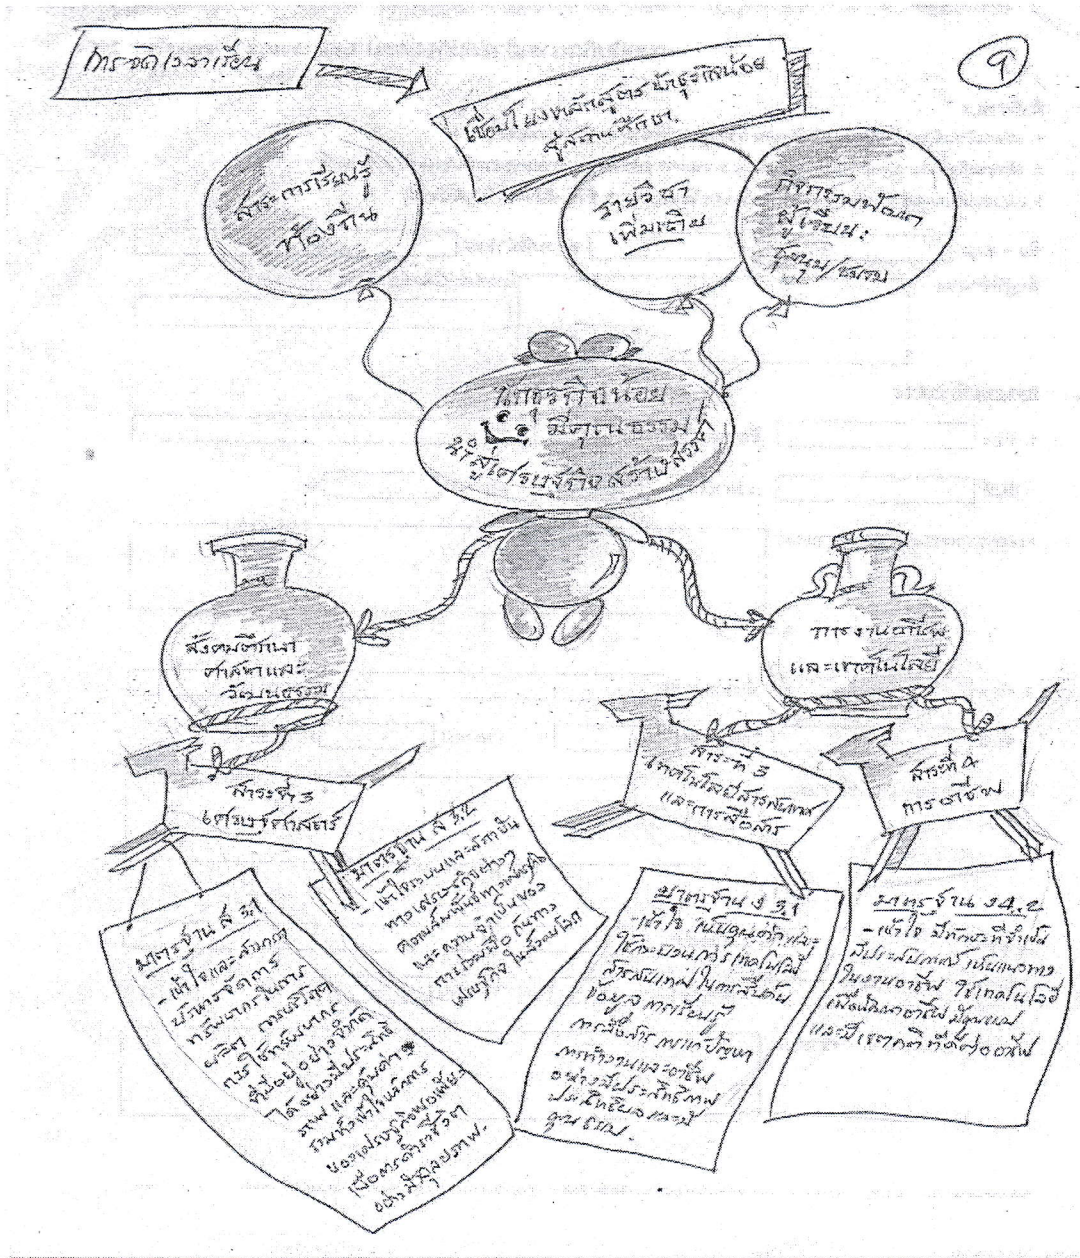 การจัดเวลาเรียน
๑
เชื่อมโยงหลักสูตร นักธุรกิจน้อย
สู่สถานศึกษา
สาระการเรียนรู้
ท้องถิ่น
รายวิชา
เพิ่มเติม
กิจกรรมพัฒนา
ผู้เรียน:
ชุมนุม/ชมรม
นักธุรกิจน้อย
มีคุณธรรม
นำสู่เศรษฐกิจสร้างสรรค์
สังคมศึกษา
ศาสนาและ
วัฒนธรรม
การงานอาชีพ
และเทคโนโลยี
สาระที่ 3
เศรษฐศาสตร์
สาระที่ 3
เทคโนโลยีสารสนเทศ
และการสื่อสาร
สาระที่ 4
การอาชีพ
มาตรฐาน ส 3.1
- เข้าใจและสามารถ
บริหารจัดการ
ทรัพยากรในการ
ผลิต การบริโภค
การใช้ทรัพยากร
ที่มีอยู่อย่างจำกัด
ได้อย่างมีประสิทธิ
ภาพ และคุ้มค่า
รวมทั้งเข้าใจหลักการ
ของเศรษฐกิจพอเพียง
เพื่อการดำรงชีวิต
อย่างมีดุลยภาพ.
มาตรฐาน ส 3.2
- เข้าใจระบบและสถาบัน
ทางเศรษฐกิจต่างๆ
ความสัมพันธ์ทางเศรษฐกิจ
และความจำเป็นของ
การร่วมมือกันทาง
เศรษฐกิจในสังคมโลก
มาตรฐาน ง 3.1
- เข้าใจ เห็นคุณค่าและ
ใช้กระบวนการเทคโนโลยี
สารสนเทศในการสืบค้น
ข้อมูล การเรียนรู้
การสื่อสาร การแก้ปัญหา
การทำงานและอาชีพ
อย่างมีประสิทธิภาพ
ประสิทธิผล และมี
คุณธรรม.
มาตรฐาน ง 4.2
- เข้าใจ มีทักษะที่จำเป็น
มีประสบการณ์ เห็นแนวทาง
ในงานอาชีพ ใช้เทคโนโลยี
เพื่อพัฒนาอาชีพ มีคุณธรรม
และมีเจตคติที่ดีต่ออาชีพ